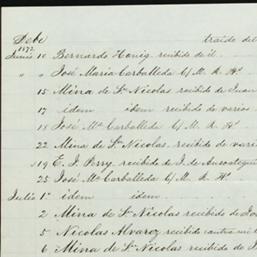 Debe traido del
1872
Junio 10 Bernardo Honig recibido de él
" " José Maria Carballeda C/ M. R. Hª
15 Mina de Sn Nicolas recibido de Juan
17 idem idem recibido de varios
18 José Mª Carballeda C/ M. Hª
22 Mina de Sn Nicolas, recibido de vario
19 E. J. Perry, recibido de J. de
25 José Mª Carballeda C/ M. R. Hª
Julio 1º idem idem
2 Mina de Sn Nicolas recibido de Jo
5 Nicolas Alvarez recibido
6 Mina de Sn Nicolas recibido de J